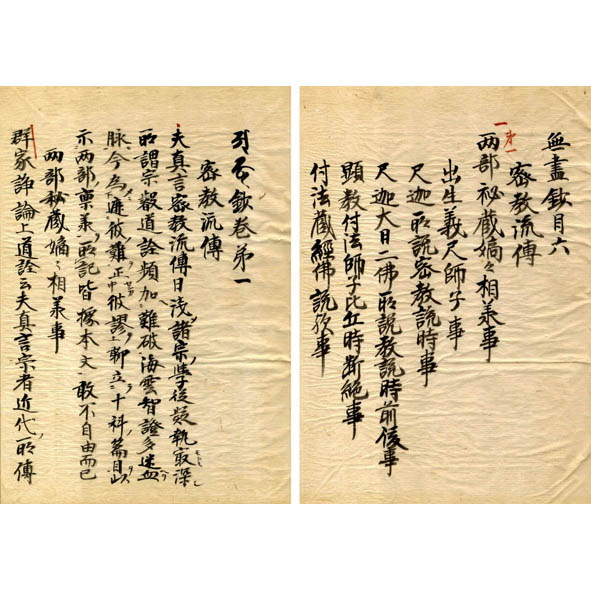 無盡鈔目六
密教流傳
一 第一
两部祕蔵嫡々相羕事
出生義尺師子事
尺迦所説密教説時事
尺迦大日二佛所説教説時前後事
顕教付法師子比丘時断絶事
付法蔵經佛説欤事
鈔巻第一
密教流傳
夫真言密教流傳日浅諸宗学徒疑執最深
所謂宗叡道詮頻加難破海雲智證多迷血
脉今為遮彼難正彼謬聊立十科篇目以
示两部稟羕所記皆據本文敢不自由而已
两部秘蔵嫡々相羕事
群家諍論上道詮云夫真言宗者近代所傳